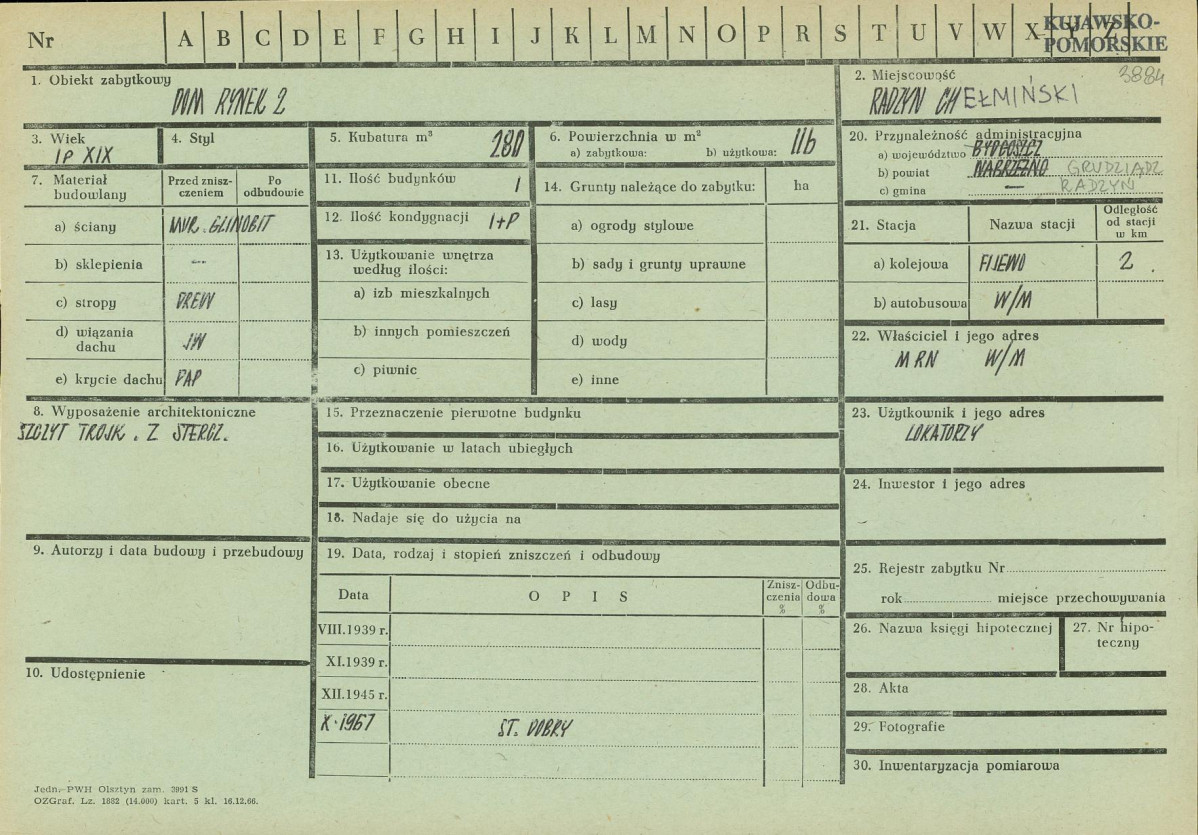 Nr A B C D E F G H I J K L M N O P R S T U V W X Y Z
KUJAWSKO-
POMORSKIE
3884
1. Obiekt zabytkowy
DOM RYNEK 2
2. Miejscowość
RADZYN CHEŁMIŃSKI
3. Wiek
IP XIX
4. Styl
5. Kubatura m³ 280
6. Powierzchnia w m²
a) zabytkowa: b) użytkowa: 116
20. Przynależność administracyjna
a) województwo BYDGOSZCZ
b) powiat WĄBRZEŹNO GRUDZIĄDZ
c) gmina — RADZYŃ
7. Materiał budowlany
Przed zniszczeniem
Po odbudowie
a) ściany MUR. GLINOBIT
b) sklepienia —
c) stropy DREW
d) wiązania dachu JW
e) krycie dachu PAP
11. Ilość budynków 1
12. Ilość kondygnacji 1+P
13. Użytkowanie wnętrza
według ilości:
a) izb mieszkalnych
b) innych pomieszczeń
c) piwnic
14. Grunty należące do zabytku: ha
a) ogrody stylowe
b) sady i grunty uprawne
c) lasy
d) wody
e) inne
21. Stacja Nazwa stacji Odległość od stacji w km
a) kolejowa FIJEWO 2
b) autobusowa W/M
22. Właściciel i jego adres
MRN W/M
8. Wyposażenie architektoniczne
SZCZYT TROJK. Z STERCZ.
15. Przeznaczenie pierwotne budynku
16. Użytkowanie w latach ubiegłych
17. Użytkowanie obecne
18. Nadaje się do użycia na
23. Użytkownik i jego adres
LOKATORZY
24. Inwestor i jego adres
9. Autorzy i data budowy i przebudowy
19. Data, rodzaj i stopień zniszczeń i odbudowy
Data OPIS Zniszczenia % Odbudowa %
VIII.1939 r.
XI.1939 r.
XII.1945 r.
X.1967 ST. DOBRY
25. Rejestr zabytku Nr
rok miejsce przechowywania
26. Nazwa księgi hipotecznej
27. Nr hipoteczny
10. Udostępnienie
28. Akta
29. Fotografie
30. Inwentaryzacja pomiarowa
Jedn. PWH Olsztyn zam. 3991 S
OZGraf. Lz. 1882 (14.000) kart. 5 kl. 16.12.66.